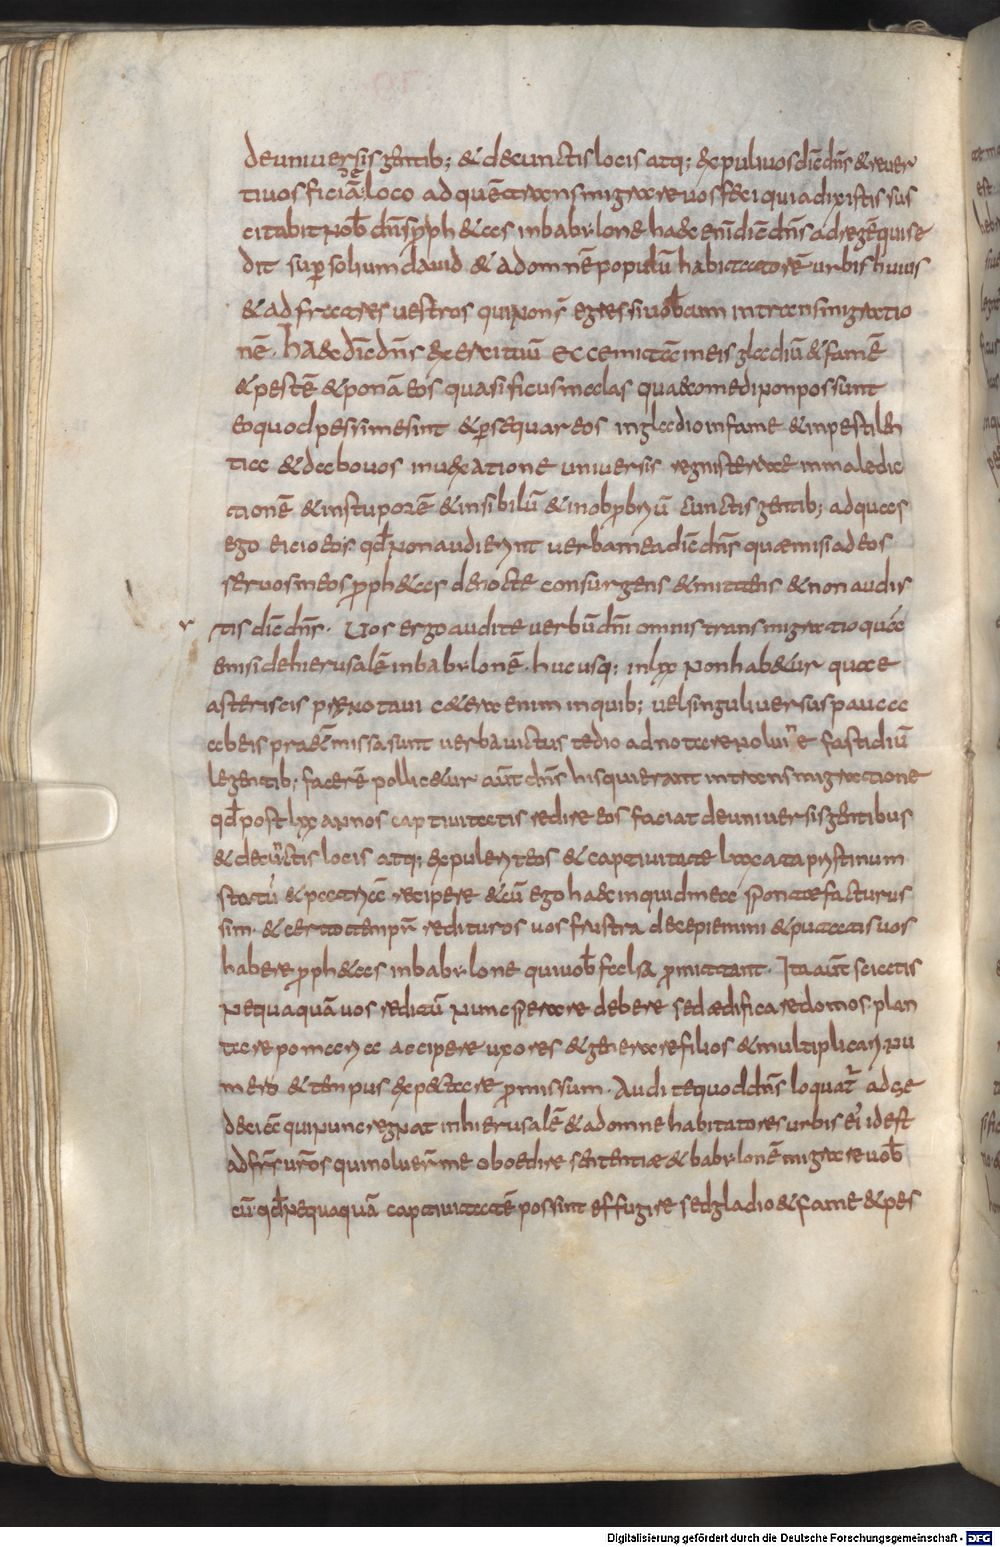 deuniuersis gentib; & decunctis locis atq; expuli uos dic̄ dn̄s & reuer
ti uos faciā de loco ad quē transmigrare uos feci quia dixistis sus
citabit nob̄ dn̄s proph&as inbabylone haec enī dic̄ dn̄s ad regē qui se
dit sup solium dauid & ad omnē populū habitatorē urbis huius
& ad fratres uestros qui non sn̄ egressi uob̄cum intransmigratio
nē. Haec dic̄ dn̄s exercituū Ecce mittā in eis gladiū & famē
& pestē & ponā eos quasi ficus malas quae comedi non possunt
eo quod pessime sint & p̄sequar eos ingladio infame & inpestilen
tia & dabo uos inuexatione uniuersis regnis terrae inmaledic
tionē & instuporē & insibilū & inobprobriū cunctis gentib; ad quas
ego eieci eos. qd̄ non audierunt uerba mea dic̄ dn̄s quae misi ad eos
seruos meos proph&as de nocte consurgens & mittens & non audis
tis dic̄ dn̄s. Uos ergo audite uerbū dn̄i omnis transmigratio quā
emisi dehierusalē inbabylonē. hucusq; in lxx non hab&ur quae
asteriscis praenotaui c&era enim inquib; uel singuli uersus pauca
ab eis praetmissa sunt uerba uictus tedio adnotare nolui ne fastidiū
legentib; facerē pollic&ur aut̄ dn̄s his qui erant intransmigratione
qd̄ post lxx annos captiuitatis redire eos faciat deuniuersis gentibus
& decunctis locis atq; expulerit eos & captiuitate laxata pristinum
statū & patriā recipere & cū ego haec inquid mea sponte facturus
sim. & certo tempr̄ redituros uos frustra decepiemini & putatis uos
habere proph&as inbabylone qui uob̄ falsa promittant. Ita aut̄ sciatis
nequaquā uos reditū nunc sperare debere sed aedificare domos. plan
tare pomaria accipere uxores & generare filios & multiplicari nu
mero & tempus expectare promissum. Audite quod dn̄s loquat̄ ad se
deciā qui nunc regnat inhierusalē & ad omne habitatores urbis ei id est
ad fr̄s ur̄os qui noluer̄ me oboedire sententiae & babylonē migrare uob̄
cū qd̄ nequaquā captiuitatē possint effugire sed gladio & fame & pes
Digitalisierung gefördert durch die Deutsche Forschungsgemeinschaft - DFG